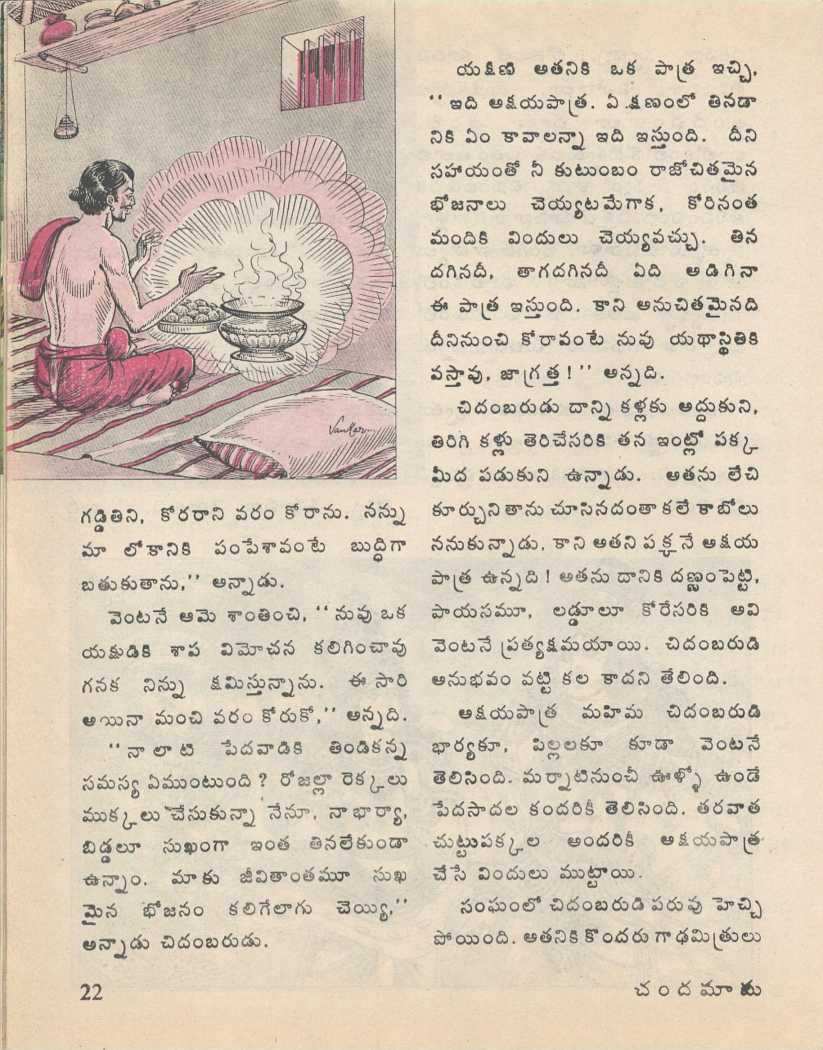 గడ్డితిని, కోరరాని వరం కోరాను. నన్ను
మా లోకానికి పంపేశావంటే బుద్ధిగా
బతుకుతాను,'' అన్నాడు.
వెంటనే ఆమె శాంతించి, ''నువు ఒక
యక్షుడికి శాప విమోచన కలిగించావు
గనక నిన్ను క్షమిస్తున్నాను. ఈ సారి
అయినా మంచి వరం కోరుకో,'' అన్నది.
''నాలాటి పేదవాడికి తిండికన్న
సమస్య ఏముంటుంది? రోజల్లా రెక్కలు
ముక్కలు చేసుకున్నా నేనూ, నా భార్యా,
బిడ్డలూ సుఖంగా ఇంత తినలేకుండా
ఉన్నాం. మాకు జీవితాంతమూ సుఖ
మైన భోజనం కలిగేలాగు చెయ్యి,''
అన్నాడు చిదంబరుడు.
యక్షిణి అతనికి ఒక పాత్ర ఇచ్చి,
''ఇది అక్షయపాత్ర. ఏ క్షణంలో తినడా
నికి ఏం కావాలన్నా ఇది ఇస్తుంది. దీని
సహాయంతో నీ కుటుంబం రాజోచితమైన
భోజనాలు చెయ్యటమేగాక, కోరినంత
మందికి విందులు చెయ్యవచ్చు. తిన
దగినదీ, తాగదగినదీ ఏది అడిగినా
ఈ పాత్ర ఇస్తుంది. కాని అనుచితమైనది
దీనినుంచి కోరావంటే నువు యథాస్థితికి
వస్తావు, జాగ్రత్త!'' అన్నది.
చిదంబరుడు దాన్ని కళ్లకు అద్దుకుని,
తిరిగి కళ్లు తెరిచేసరికి తన ఇంట్లో పక్క
మీద పడుకుని ఉన్నాడు. అతను లేచి
కూర్చుని తాను చూసినదంతా కలే కాబోలు
ననుకున్నాడు. కాని అతని పక్కనే అక్షయ
పాత్ర ఉన్నది! అతను దానికి దణ్ణంపెట్టి,
పాయసమూ, లడ్డూలూ కోరేసరికి అవి
వెంటనే ప్రత్యక్షమయాయి. చిదంబరుడి
అనుభవం వట్టి కల కాదని తేలింది.
అక్షయపాత్ర మహిమ చిదంబరుడి
భార్యకూ, పిల్లలకూ కూడా వెంటనే
తెలిసింది. మర్నాటినుంచీ ఊళ్ళో ఉండే
పేదసాదల కందరికీ తెలిసింది. తరవాత
చుట్టుపక్కల అందరికీ అక్షయపాత్ర
చేసే విందులు ముట్టాయి.
సంఘంలో చిదంబరుడి పరువు హెచ్చి
పోయింది. అతనికి కొందరు గాఢమిత్రులు
22
చందమామ